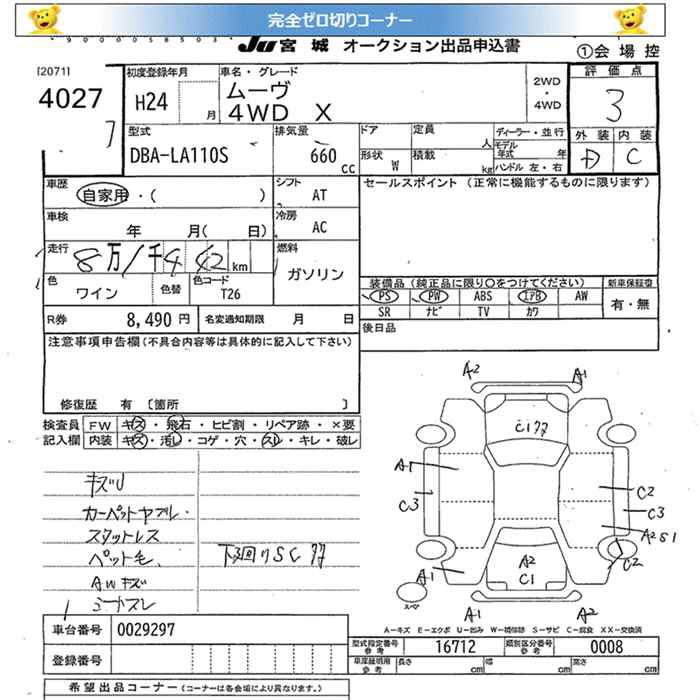 完全ゼロ切りコーナー
JU 宮城 オークション出品申込書
①会場控
[2071]
4027
初度登録年月
H24
月
車名・グレード
ムーヴ
4WD X
2WD
・
4WD
評価点
3
外装 内装
D C
型式
DBA-LA110S
排気量
660
CC
ドア
定員
人
ディーラー・並行
モデル年式
年
形状
W
積載
kg
ハンドル 左・右
車歴
自家用・( )
シフト
AT
セールスポイント (正常に機能するものに限ります)
車検
年 月( 日)
冷房
AC
走行
8万1千442km
燃料
ガソリン
色
ワイン
色替
色コード
T26
装備品 (純正品に限り○をつけてください)
新車保証書
PS PW ABS エアB AW
有・無
SR ナビ TV カワ
R券
8,490 円
名変通知期限 月 日
後日品
注意事項申告欄(不具合内容等は具体的に記入して下さい)
修復歴 有 〔箇所 〕
検査員記入欄
FW キズ・飛石・ヒビ割・リペア跡・×要
内装 キズ・汚レ・コゲ・穴・スレ・キレ・破レ
カーペットヤブレ・
スタットレス
ペット毛、
AWキズ
シートスレ
A2 A1
A1
C3
C2
C3
A2S1
C2
A2
C1
A1
スペア
A1 A2
A-キズ E-エクボ U-凹み W-補修跡 S-サビ C-腐食 XX-交換済
車台番号
0029297
型式指定番号
参考
16712
類別区分番号
参考
0008
登録番号
車庫証明用
参考
長さ cm
幅 cm
高さ cm
希望出品コーナー (コーナーは各会場により異なります。)